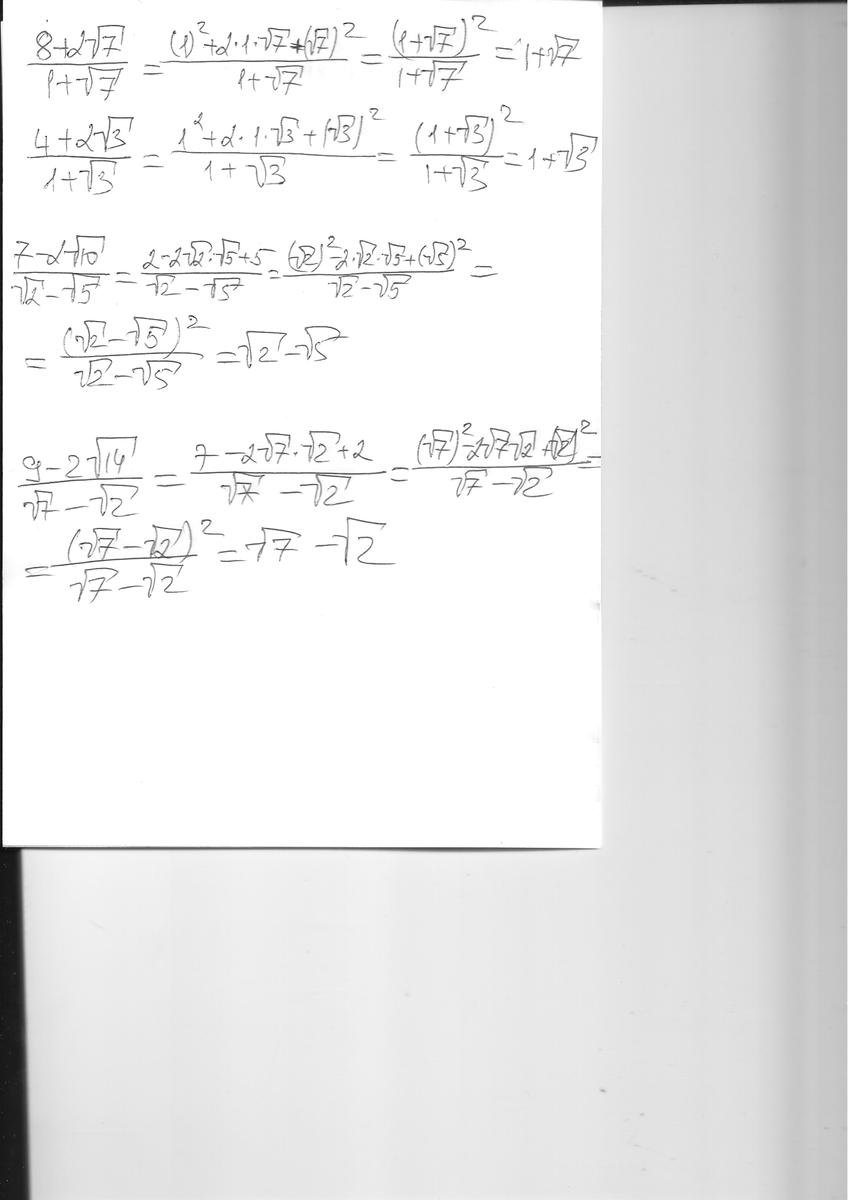 (8+2√7)/(1+√7) = ((1)²+2·1·√7+(√7)²)/(1+√7) = (1+√7)²/(1+√7) = 1+√7
(4+2√3)/(1+√3) = (1²+2·1·√3+(√3)²)/(1+√3) = (1+√3)²/(1+√3) = 1+√3
(7-2√10)/(√2-√5) = (2-2√2·√5+5)/(√2-√5) = ((√2)²-2·√2·√5+(√5)²)/(√2-√5) =
= (√2-√5)²/(√2-√5) = √2-√5
(9-2√14)/(√7-√2) = (7-2√7·√2+2)/(√7-√2) = ((√7)²-2√7√2+(√2)²)/(√7-√2) =
= (√7-√2)²/(√7-√2) = √7-√2